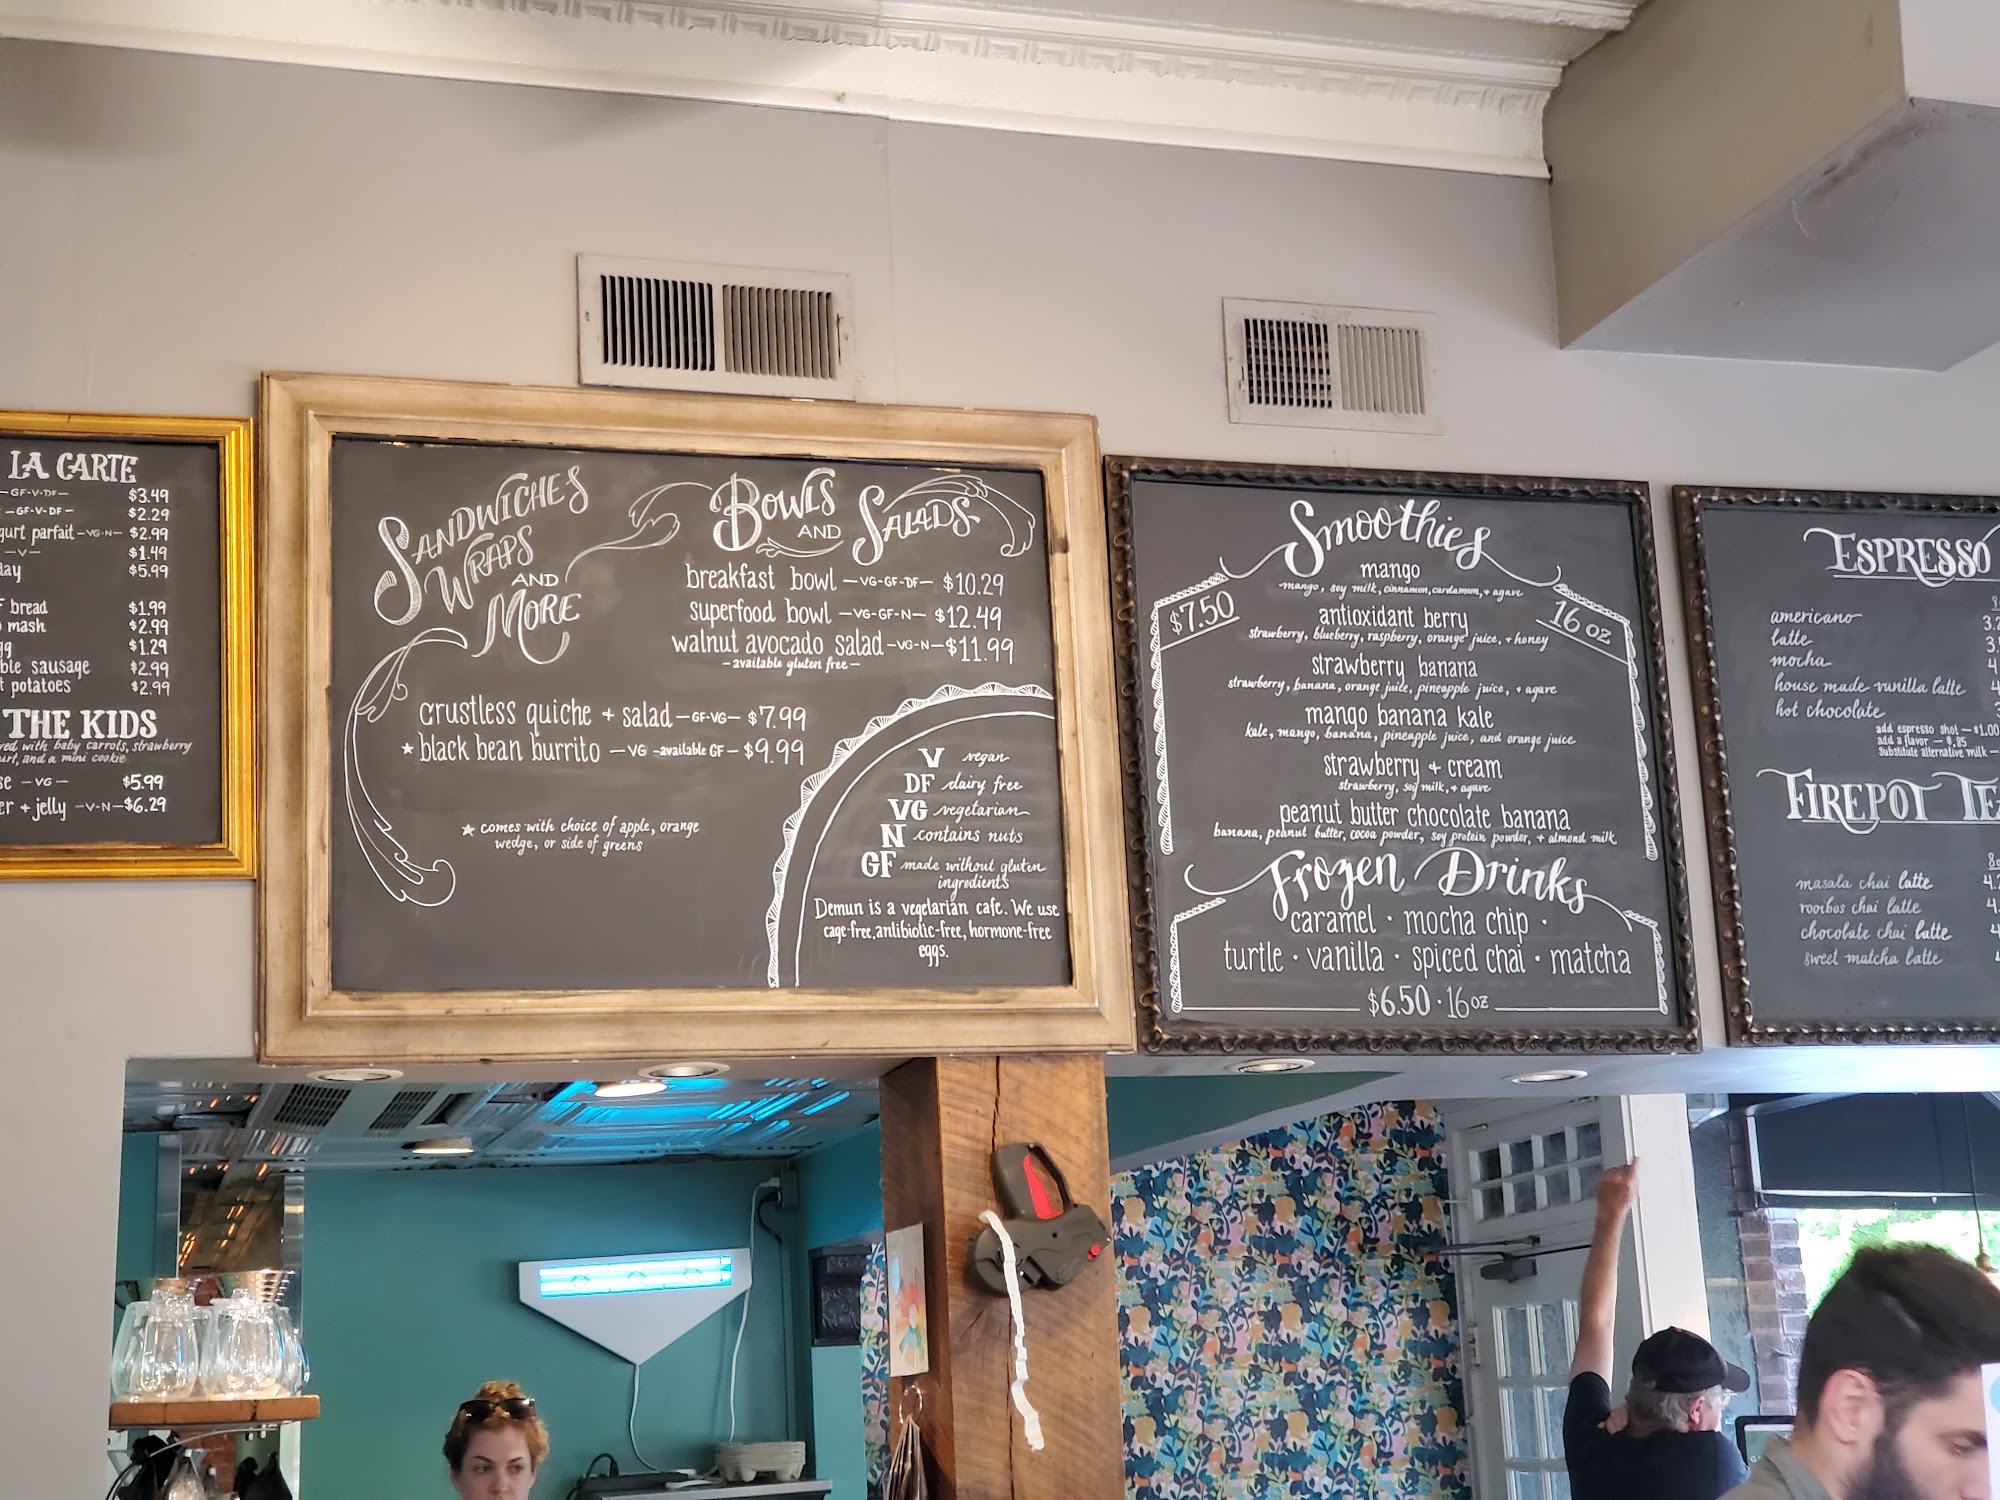 LA CARTE
-GF-V-DF- $3.49
-GF-V-DF- $2.29
parfait -VG-N- $2.99
-V- $1.49
$5.99
bread $1.99
mash $2.99
$1.29
sausage $2.99
potatoes $2.99
THE KIDS
with baby carrots, strawberry
and a mini cookie
-VG- $5.99
+ jelly -V-N- $6.29
SANDWICHES
WRAPS
AND
MORE
crustless quiche + salad -GF-VG- $7.99
★ black bean burrito -VG -available GF- $9.99
★ comes with choice of apple, orange
wedge, or side of greens
BOWLS
AND SALADS
breakfast bowl -VG-GF-DF- $10.29
superfood bowl -VG-GF-N- $12.49
walnut avocado salad -VG-N- $11.99
-available gluten free-
V vegan
DF dairy free
VG vegetarian
N contains nuts
GF made without gluten
ingredients
Demun is a vegetarian cafe. We use
cage-free, antibiotic-free, hormone-free
eggs.
Smoothies
$7.50
16 oz
mango
mango, soy milk, cinnamon, cardamom, + agave
antioxidant berry
strawberry, blueberry, raspberry, orange juice, + honey
strawberry banana
strawberry, banana, orange juice, pineapple juice, + agave
mango banana kale
kale, mango, banana, pineapple juice, and orange juice
strawberry + cream
strawberry, soy milk, + agave
peanut butter chocolate banana
banana, peanut butter, cocoa powder, soy protein powder, + almond milk
Frozen Drinks
caramel · mocha chip ·
turtle · vanilla · spiced chai · matcha
$6.50 · 16 oz
ESPRESSO
americano
latte
mocha
house made vanilla latte
hot chocolate
add espresso shot - $1.00
add a flavor - $.85
Substitute alternative milk -
FIREPOT
masala chai latte
rooibos chai latte
chocolate chai latte
sweet matcha latte